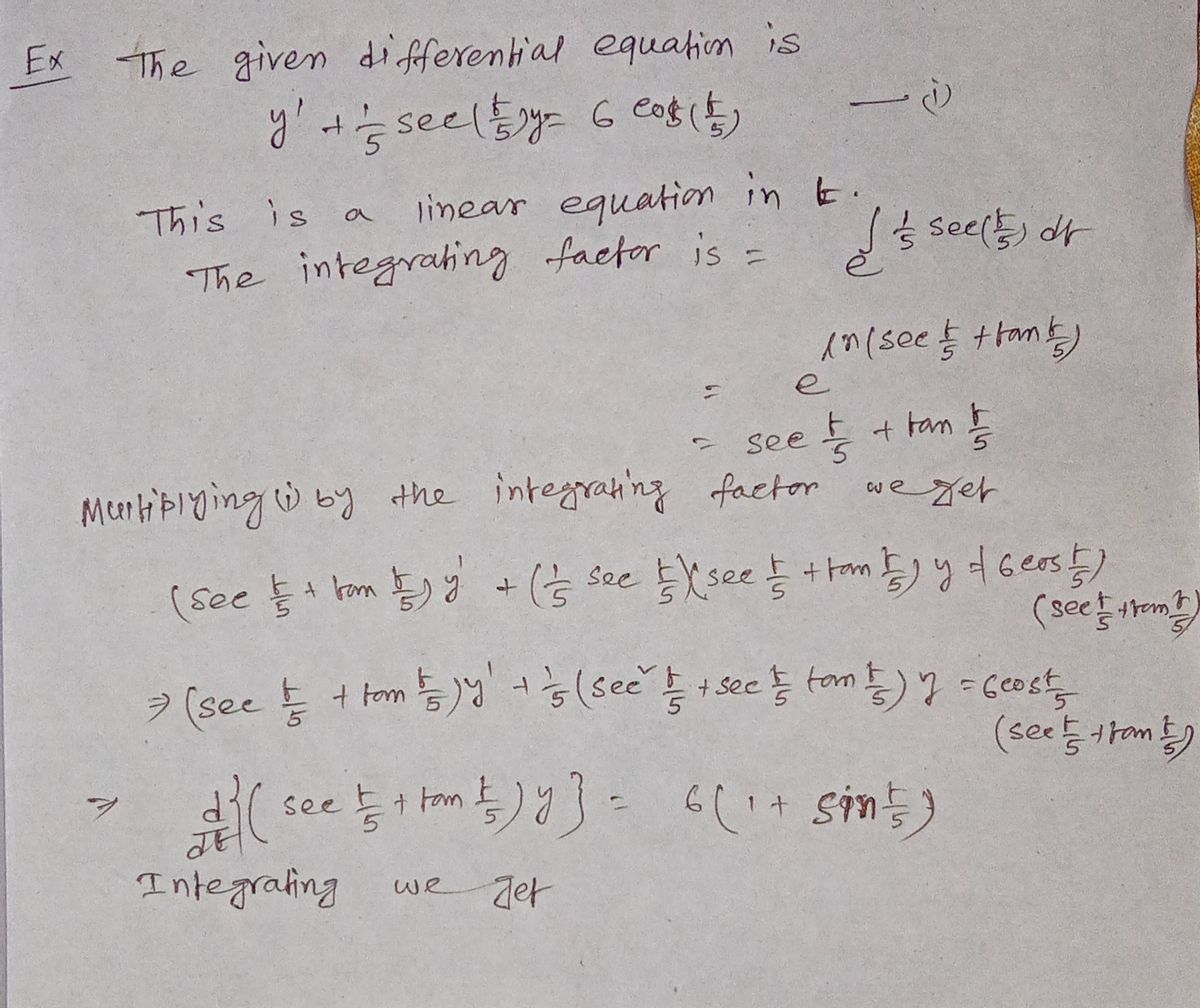 Ex The given differential equation is
y' + 1/5 sec(t/5)y = 6 cos(t/5) — (i)
This is a linear equation in t.
The integrating factor is = e^∫ 1/5 sec(t/5) dt
= e^ln(sec t/5 + tan t/5)
= sec t/5 + tan t/5
Multiplying (i) by the integrating factor we get
(sec t/5 + tan t/5) y' + (1/5 sec t/5)(sec t/5 + tan t/5) y = (6 cos t/5)
(sec t/5 + tan t/5)
⇒ (sec t/5 + tan t/5) y' + 1/5 (sec² t/5 + sec t/5 tan t/5) y = 6 cos t/5
(sec t/5 + tan t/5)
⇒ d/dt {(sec t/5 + tan t/5) y} = 6(1 + sin t/5)
Integrating we get